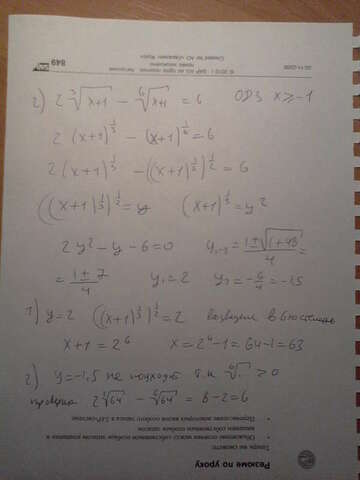 2) 2 ∛(x+1) − ⁶√(x+1) = 6   ОДЗ x ≥ −1
2 (x+1)^(1/3) − (x+1)^(1/6) = 6
2 (x+1)^(1/3) − ((x+1)^(1/3))^(1/2) = 6
((x+1)^(1/3))^(1/2) = y   (x+1)^(1/3) = y²
2y² − y − 6 = 0   y₁,₂ = (1 ± √(1+48))/4 =
= (1 ± 7)/4   y₁ = 2   y₂ = −6/4 = −1.5
1) y = 2   ((x+1)^(1/3))^(1/2) = 2   возведем в 6ю степень
x + 1 = 2⁶   x = 2⁶ − 1 = 64 − 1 = 63
2) y = −1,5 не подходит т.к ⁶√ ≥ 0
проверка 2 ∛64 − ⁶√64 = 8 − 2 = 6
Резюме по уроку
Теперь вы сможете:
849